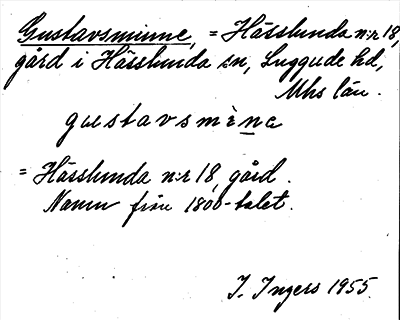 Gustavsminne, = Hässlunda n:r 18,
gård i Hässlunda sn, Luggude hd,
Mhs län.
gustavsmìne
= Hässlunda n:r 18, gård.
Namn från 1800-talet.
I. Ingers 1955.